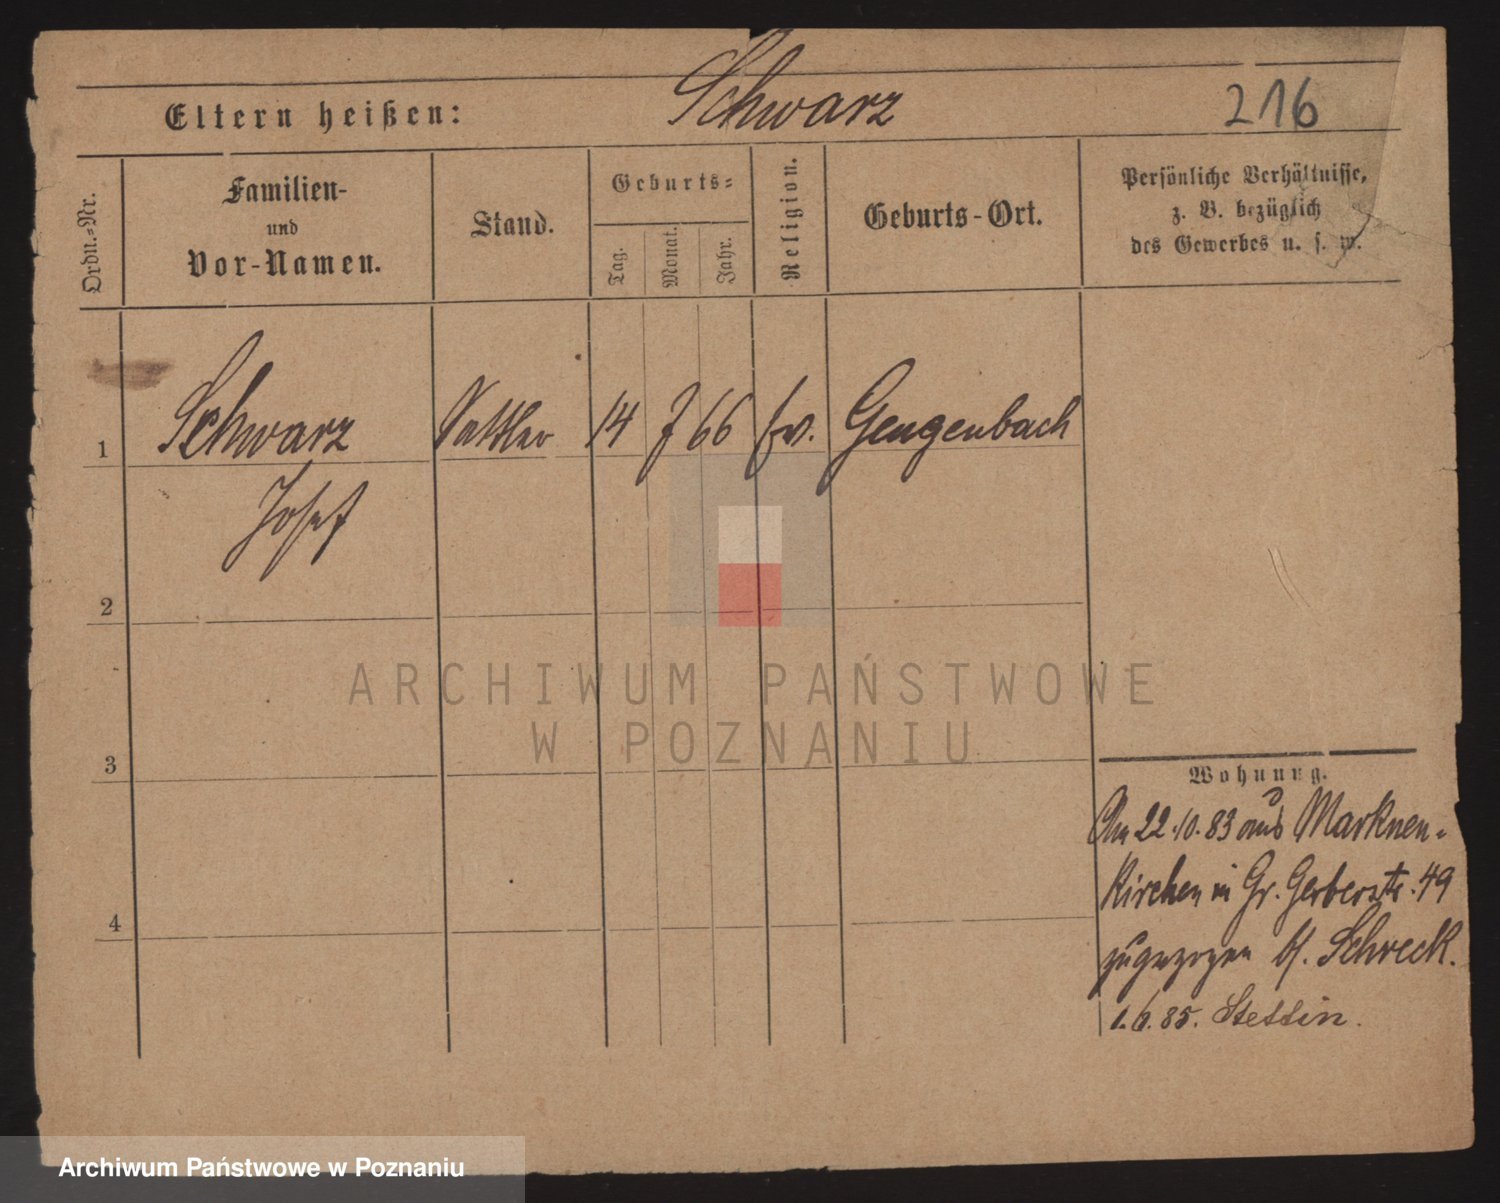 Schwarz
216
Eltern heißen:
Ordn.-Nr.
Familien-
und
Vor-Namen.
Stand.
Geburts-
Tag.
Monat.
Jahr.
Religion.
Geburts-Ort.
Persönliche Verhältnisse,
z. B. bezüglich
des Gewerbes u. s. w.
1
Schwarz Sattler 14 7 66 ev. Gengenbach
Josef
2
3
4
Wohnung.
Am 22.10.83 aus Marknen-
kirchen in Gr. Gerberstr. 49
zugezogen bf. Schreck.
1.6.85. Stettin.
ARCHIWUM PAŃSTWOWE
W POZNANIU
Archiwum Państwowe w Poznaniu